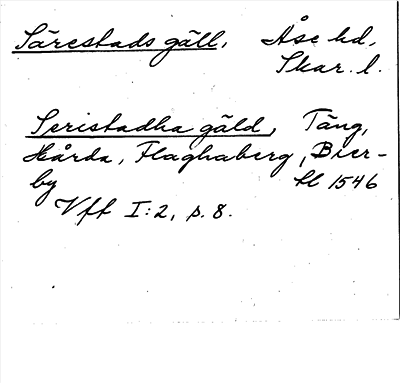 Särestads gäll, Åse hd,
Skar. l.
Seristadha gäld, Täng,
Hårda, Flaghaberg, Bier-
by hl 1546
Vff I:2, p. 8.